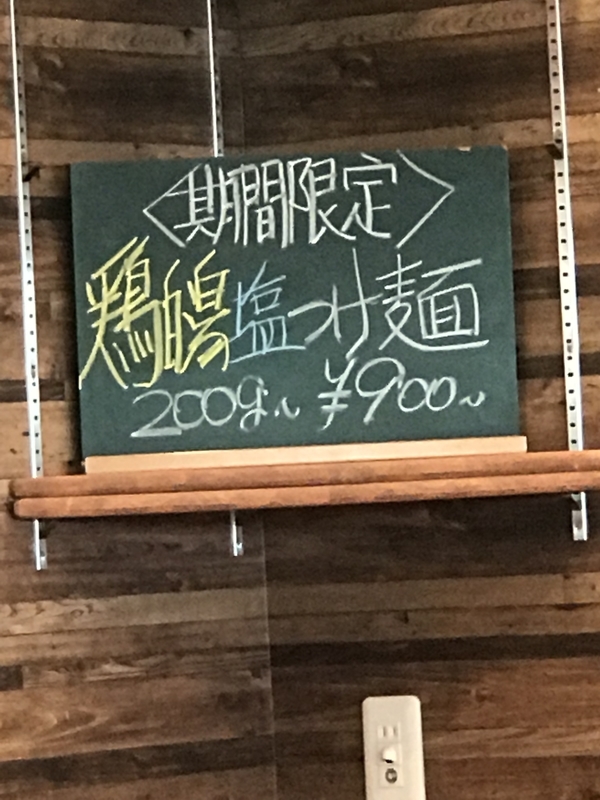 〈期間限定〉
鶏白湯塩つけ麺
200g〜 ¥900〜